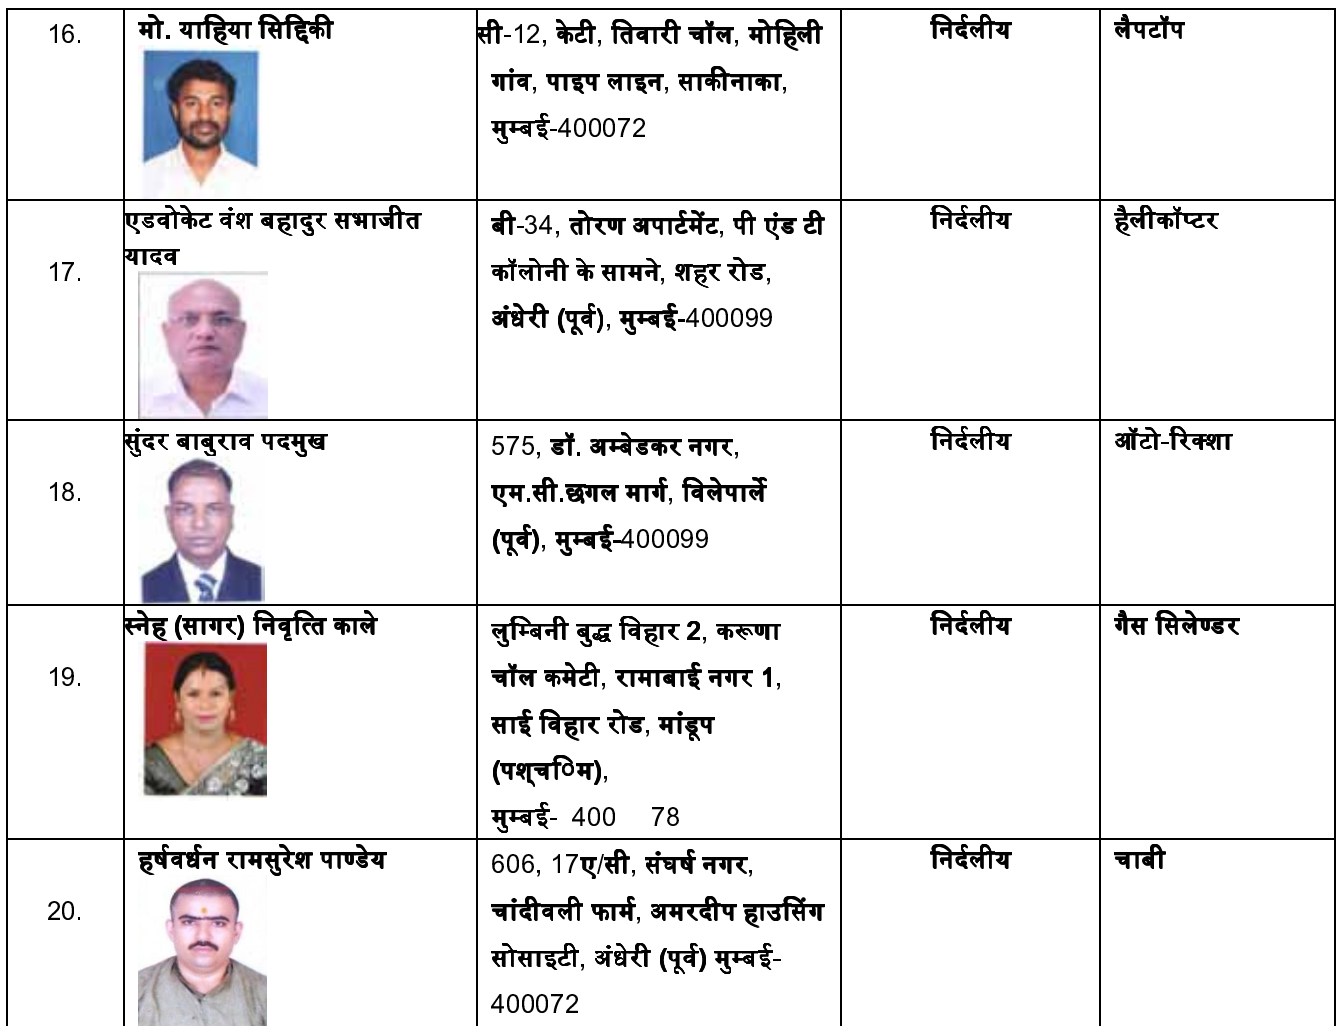 16.
मो. याहिया सिद्दिकी
सी-12, केटी, तिवारी चॉल, मोहिली
गांव, पाइप लाइन, साकीनाका,
मुम्बई-400072
निर्दलीय
लैपटॉप
17.
एडवोकेट वंश बहादुर सभाजीत
यादव
बी-34, तोरण अपार्टमेंट, पी एंड टी
कॉलोनी के सामने, शहर रोड,
अंधेरी (पूर्व), मुम्बई-400099
निर्दलीय
हैलीकॉप्टर
18.
सुंदर बाबुराव पदमुख
575, डॉ. अम्बेडकर नगर,
एम.सी.छगल मार्ग, विलेपार्ले
(पूर्व), मुम्बई-400099
निर्दलीय
ऑटो-रिक्शा
19.
स्नेह (सागर) निवृत्ति काले
लुम्बिनी बुद्ध विहार 2, करूणा
चॉल कमेटी, रामाबाई नगर 1,
साई विहार रोड, मांडूप
(पश्चिम),
मुम्बई- 400 78
निर्दलीय
गैस सिलेण्डर
20.
हर्षवर्धन रामसुरेश पाण्डेय
606, 17ए/सी, संघर्ष नगर,
चांदीवली फार्म, अमरदीप हाउसिंग
सोसाइटी, अंधेरी (पूर्व) मुम्बई-
400072
निर्दलीय
चाबी